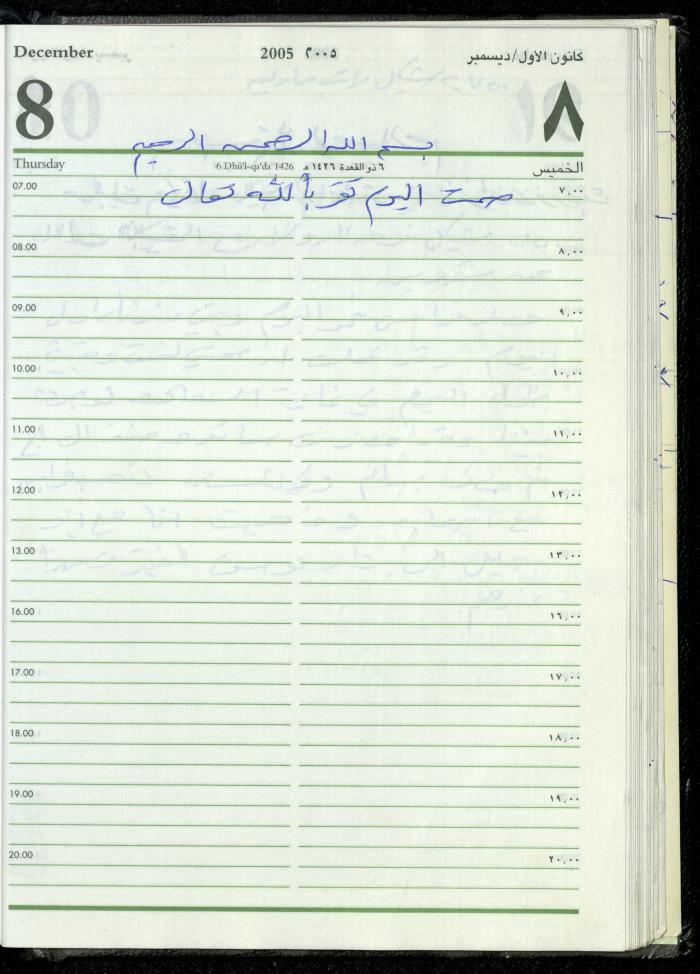 December 2005 ٢٠٠٥ كانون الاول/ديسمبر
8 ٨
بسم الله الرحمن الرحيم
Thursday 6 Dhū'l-qa'da 1426 ٦ ذو القعدة ١٤٢٦ هـ الخميس
07.00 ٧,٠٠
صمت اليوم تقرباً لله تعالى
08.00 ٨,٠٠
09.00 ٩,٠٠
10.00 ١٠,٠٠
11.00 ١١,٠٠
12.00 ١٢,٠٠
13.00 ١٣,٠٠
16.00 ١٦,٠٠
17.00 ١٧,٠٠
18.00 ١٨,٠٠
19.00 ١٩,٠٠
20.00 ٢٠,٠٠